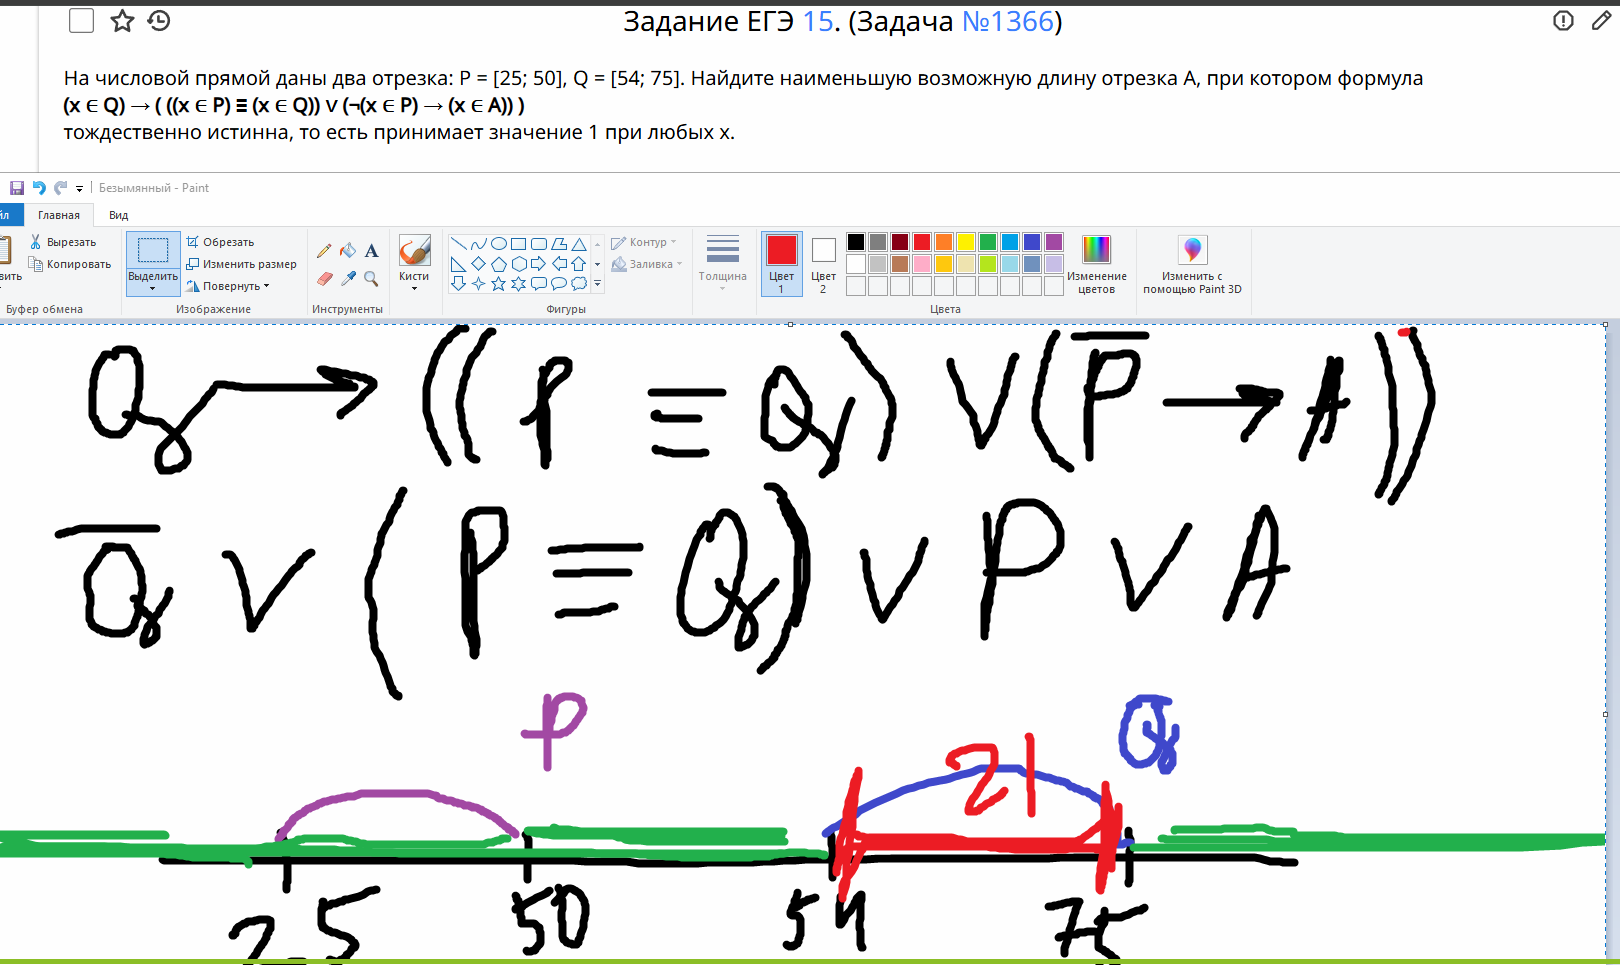 Задание ЕГЭ 15. (Задача №1366)
На числовой прямой даны два отрезка: P = [25; 50], Q = [54; 75]. Найдите наименьшую возможную длину отрезка A, при котором формула
(x ∈ Q) → ( ((x ∈ P) ≡ (x ∈ Q)) ∨ (¬(x ∈ P) → (x ∈ A)) )
тождественно истинна, то есть принимает значение 1 при любых x.
Безымянный - Paint
Главная Вид
Вырезать
Копировать
Буфер обмена
Выделить
Обрезать
Изменить размер
Повернуть
Изображение
A
Инструменты
Кисти
Контур
Заливка
Фигуры
Толщина
Цвет 1
Цвет 2
Изменение цветов
Цвета
Изменить с помощью Paint 3D
Q → ((P ≡ Q) ∨ (P̅ → A))
Q̅ ∨ (P ≡ Q) ∨ P ∨ A
P Q
21
25 50 54 75